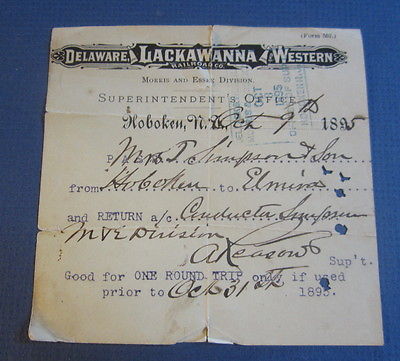 (Form 507.)
DELAWARE, LACKAWANNA & WESTERN
RAILROAD CO.
MORRIS AND ESSEX DIVISION.
SUPERINTENDENT'S OFFICE
OCT
1895
Hoboken, N. J. Oct 9th 1895
Simpson & Son
from Hoboken to Elmira
and RETURN a/c. Conductor Simpson
M & E Division
A Reasoner
Sup't.
Good for ONE ROUND TRIP only if used
prior to Oct 31st 1895.